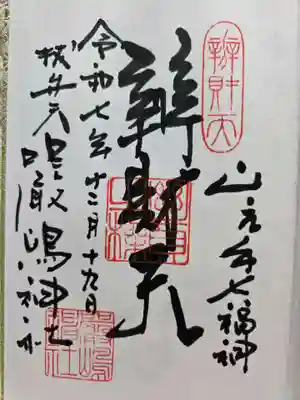 辨財天
山之手七福神
辨財天
令和七年十二月十九日
抜弁天 嚴嶋神社
嚴嶋神社